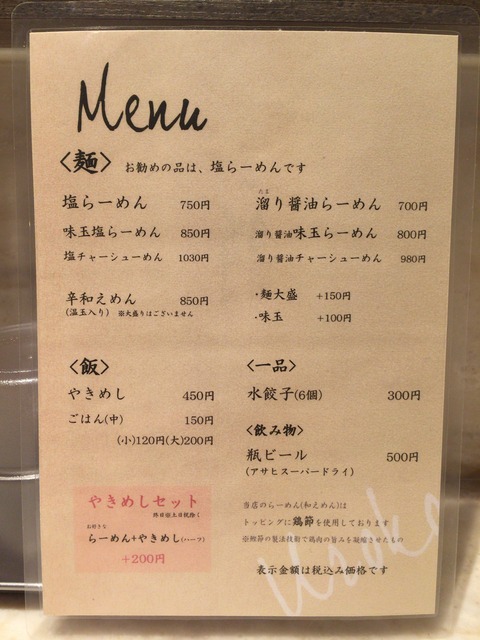 Menu
〈麺〉 お勧めの品は、塩らーめんです
塩らーめん 750円
味玉塩らーめん 850円
塩チャーシューめん 1030円
辛和えめん 850円
(温玉入り) ※大盛りはございません
たま
溜り醤油らーめん 700円
溜り醤油味玉らーめん 800円
溜り醤油チャーシューめん 980円
・麺大盛 +150円
・味玉 +100円
〈飯〉
やきめし 450円
ごはん(中) 150円
(小)120円(大)200円
〈一品〉
水餃子(6個) 300円
〈飲み物〉
瓶ビール 500円
(アサヒスーパードライ)
やきめしセット
終日※土日祝除く
お好きな
らーめん+やきめし(ハーフ)
+200円
当店のらーめん(和えめん)は
トッピングに鶏節を使用しております
※鰹節の製法技術で鶏肉の旨みを凝縮させたもの
表示金額は税込み価格です